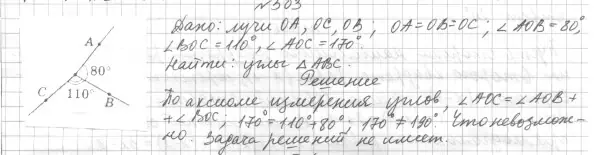 №303
Дано: лучи OA, OC, OB; OA=OB=OC; ∠AOB=80°,
∠BOC=110°, ∠AOC=170°.
Найти: углы △ABC.
Решение
По аксиоме измерения углов, ∠AOC=∠AOB+
+∠BOC; 170°=110°+80°; 170°≠190°. Что невозмож-
но. Задача решений не имеет.
A
80°
110°
C
B